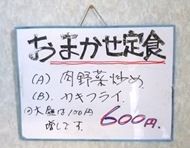 おまかせ定食
(A) 肉野菜炒め
(B). カキフライ
大盛は100円
増しです。
600円.